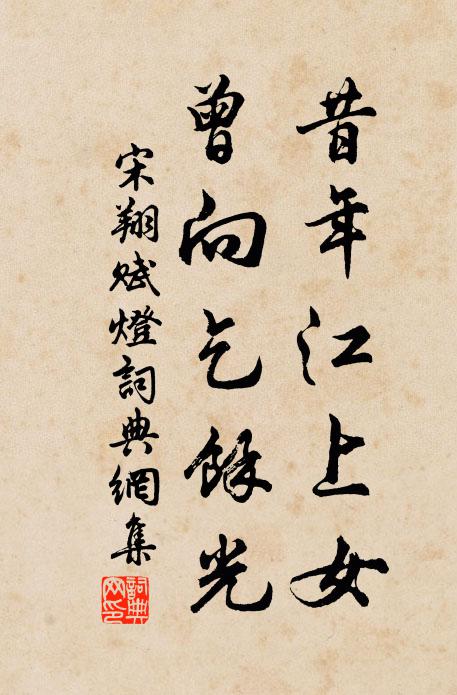 昔年江上女
曾向乞餘光
宋翔賦燈詞典網集
詞典網印